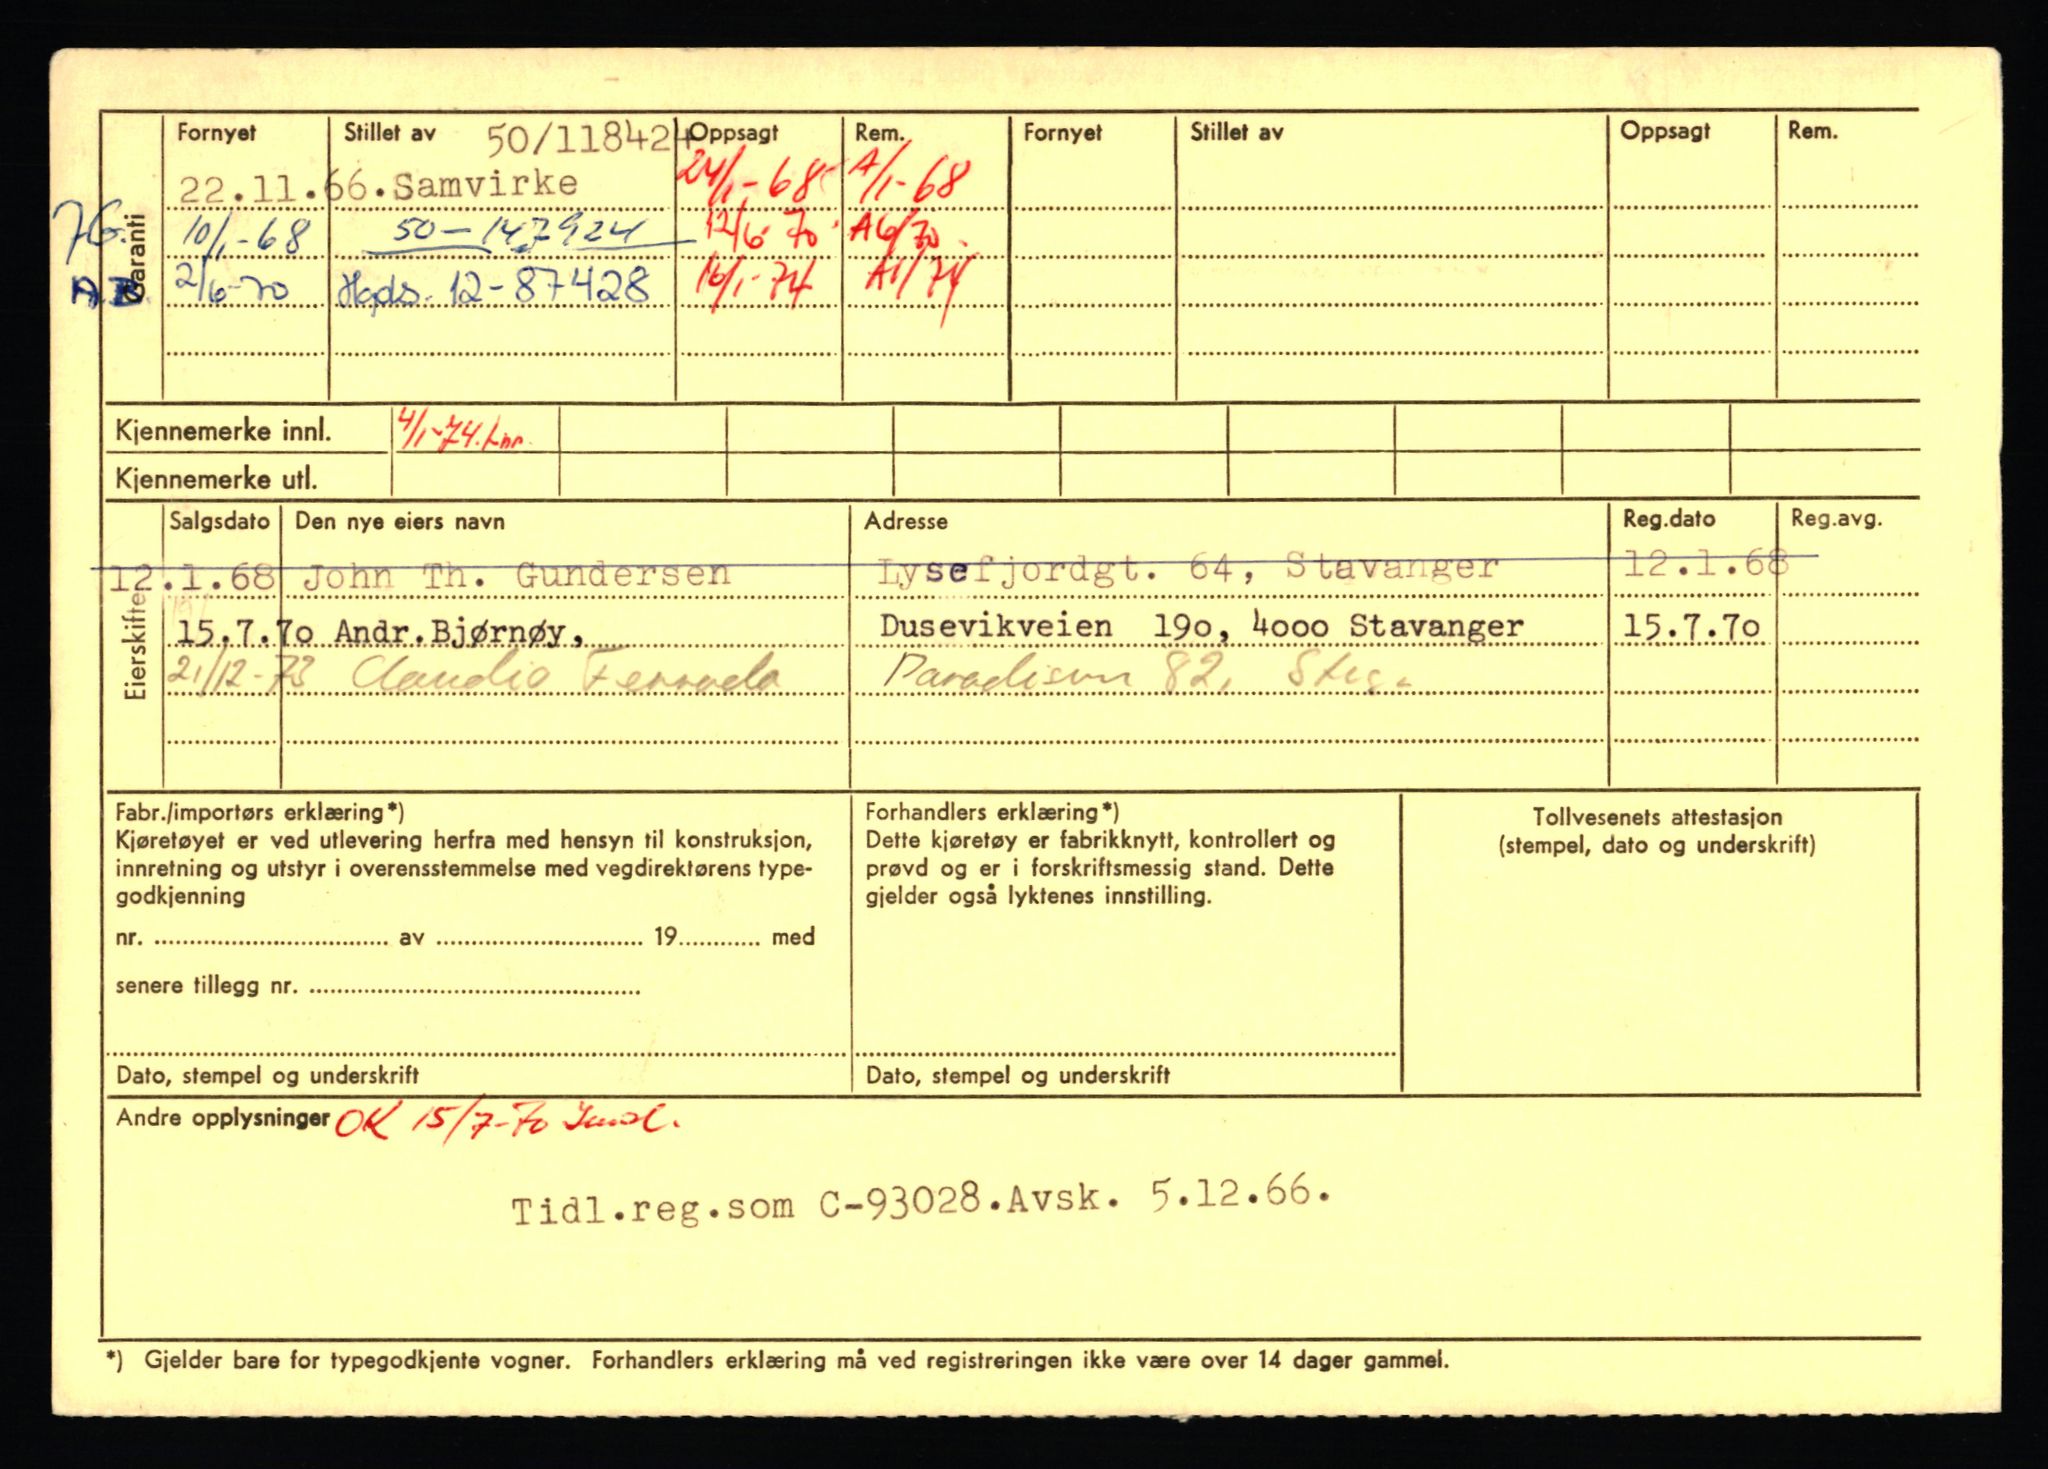 Garanti
Fornyet Stillet av 50/118424 Oppsagt Rem. Fornyet Stillet av Oppsagt Rem.
22.11.66. Samvirke 24/1-68 A/1-68
10/1-68 50-147924 12/6-70 A6/70
2/6-70 12-87428 16/1-74 A1/74
Kjennemerke innl. 4/1-74.
Kjennemerke utl.
Eierskifte
Salgsdato Den nye eiers navn Adresse Reg.dato Reg.avg.
12.1.68 John Th. Gundersen Lysefjordgt. 64, Stavanger 12.1.68
15.7.70 Andr.Bjørnøy, Dusevikveien 190, 4000 Stavanger 15.7.70
21/12-73 Claudio 82,
Fabr./importørs erklæring*)
Kjøretøyet er ved utlevering herfra med hensyn til konstruksjon,
innretning og utstyr i overensstemmelse med vegdirektørens type-
godkjenning
nr. av 19 med
senere tillegg nr.
Dato, stempel og underskrift
Forhandlers erklæring*)
Dette kjøretøy er fabrikknytt, kontrollert og
prøvd og er i forskriftsmessig stand. Dette
gjelder også lyktenes innstilling.
Dato, stempel og underskrift
Tollvesenets attestasjon
(stempel, dato og underskrift)
Andre opplysninger OK 15/7-70
Tidl.reg.som C-93028.Avsk. 5.12.66.
*) Gjelder bare for typegodkjente vogner. Forhandlers erklæring må ved registreringen ikke være over 14 dager gammel.